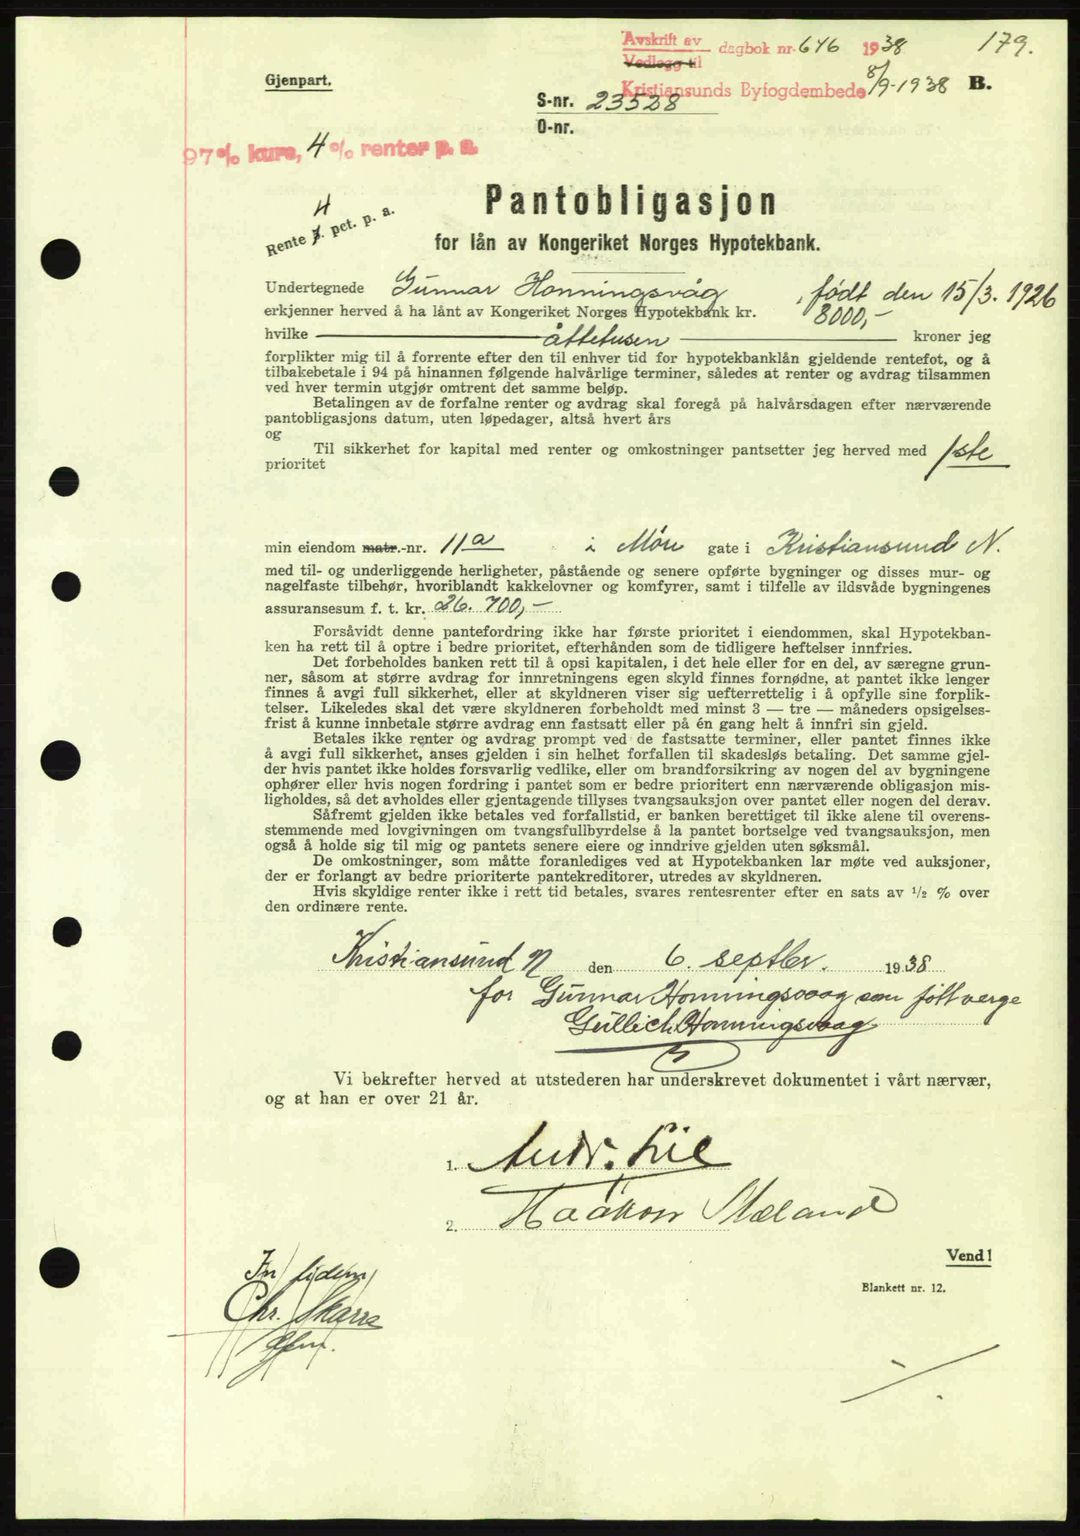 Avskrift av
Vedlegg til
dagbok nr. 646 1938 179.
Kristiansunds Byfogdembede 8/9-1938 B.
Gjenpart.
S-nr. 23528
O-nr.
97% kurs, 4 % renter p. a.
Pantobligasjon
4
Rente 3. pct. p. a.
for lån av Kongeriket Norges Hypotekbank.
Undertegnede Gunnar Honningsvåg, født den 15/3. 1926
erkjenner herved å ha lånt av Kongeriket Norges Hypotekbank kr. 8000,-
hvilke åttetusen kroner jeg
forplikter mig til å forrente efter den til enhver tid for hypotekbanklån gjeldende rentefot, og å
tilbakebetale i 94 på hinannen følgende halvårlige terminer, således at renter og avdrag tilsammen
ved hver termin utgjør omtrent det samme beløp.
Betalingen av de forfalne renter og avdrag skal foregå på halvårsdagen efter nærværende
pantobligasjons datum, uten løpedager, altså hvert års
og
Til sikkerhet for kapital med renter og omkostninger pantsetter jeg herved med 1ste
prioritet
min eiendom matr.-nr. 11a i Møre gate i Kristiansund N.
med til- og underliggende herligheter, påstående og senere opførte bygninger og disses mur- og
nagelfaste tilbehør, hvoriblandt kakkelovner og komfyrer, samt i tilfelle av ildsvåde bygningenes
assuransesum f. t. kr. 26.700,-
Forsåvidt denne pantefordring ikke har første prioritet i eiendommen, skal Hypotekban-
ken ha rett til å optre i bedre prioritet, efterhånden som de tidligere heftelser innfries.
Det forbeholdes banken rett til å opsi kapitalen, i det hele eller for en del, av særegne grun-
ner, såsom at større avdrag for innretningens egen skyld finnes fornødne, at pantet ikke lenger
finnes å avgi full sikkerhet, eller at skyldneren viser sig uefterrettelig i å opfylle sine forplik-
telser. Likeledes skal det være skyldneren forbeholdt med minst 3 — tre — måneders opsigelses-
frist å kunne innbetale større avdrag enn fastsatt eller på én gang helt å innfri sin gjeld.
Betales ikke renter og avdrag prompt ved de fastsatte terminer, eller pantet finnes ikke
å avgi full sikkerhet, anses gjelden i sin helhet forfallen til skadesløs betaling. Det samme gjel-
der hvis pantet ikke holdes forsvarlig vedlike, eller om brandforsikring av nogen del av bygningene
ophører eller hvis nogen fordring i pantet som er bedre prioritert enn nærværende obligasjon mis-
ligholdes, så det avholdes eller gjentagende tillyses tvangsauksjon over pantet eller nogen del derav.
Såfremt gjelden ikke betales ved forfallstid, er banken berettiget til ikke alene til overens-
stemmende med lovgivningen om tvangsfullbyrdelse å la pantet bortselge ved tvangsauksjon, men
også å holde sig til mig og pantets senere eiere og inndrive gjelden uten søksmål.
De omkostninger, som måtte foranlediges ved at Hypotekbanken lar møte ved auksjoner,
der er forlangt av bedre prioriterte pantekreditorer, utredes av skyldneren.
Hvis skyldige renter ikke i rett tid betales, svares rentesrenter efter en sats av 1/2 % over
den ordinære rente.
Kristiansund N den 6. septbr. 1938
for Gunnar Honningsvaag som født verge
Gullich Honningsvaag
Vi bekrefter herved at utstederen har underskrevet dokumentet i vårt nærvær,
og at han er over 21 år.
1. Andr. Lie
2. Haakon Mæland
Vend!
In fidem
Chr. Skarre
gfm.
Blankett nr. 12.